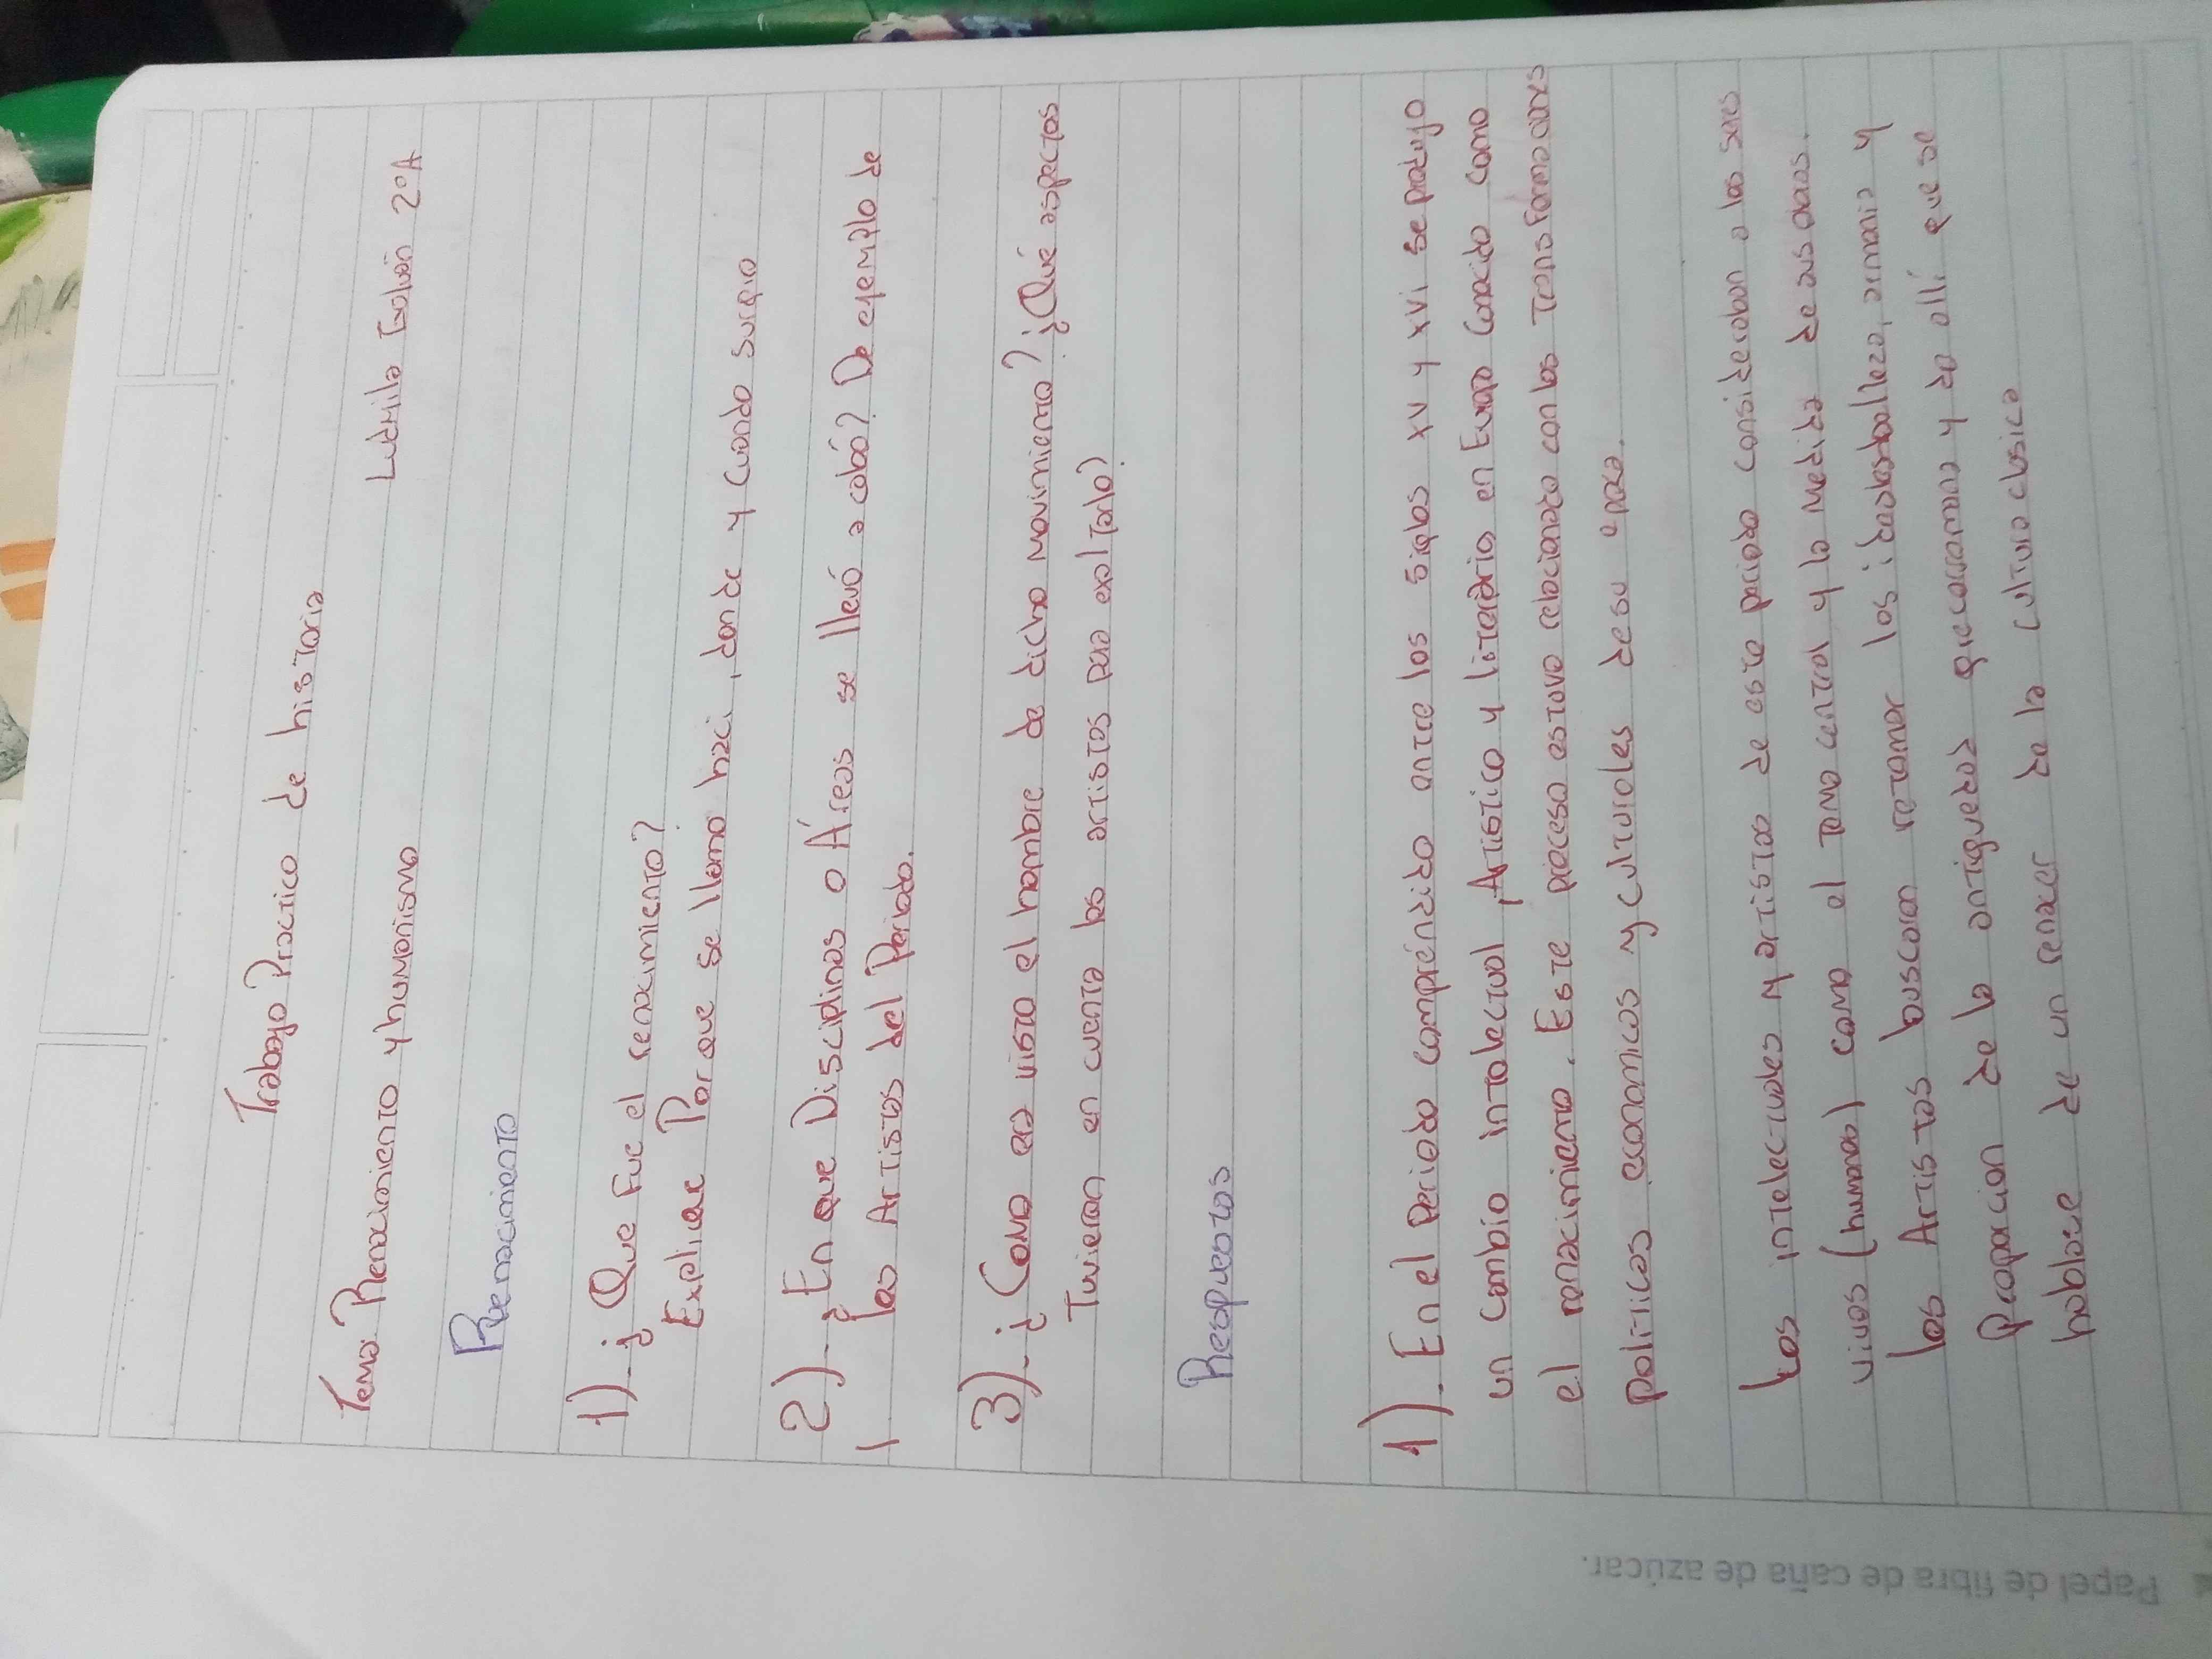 Trabajo Practico de historia
Tema: Renacimiento y humanismo
Ludmila 2ºA
Renacimiento
1)-¿Que Fue el renacimiento?
Explique Porque se llamo haci, donde y cuando surgio
2)-¿En que Disciplinas o Áreas se llevó a cabó? De ejemplo de
los Artistas del Periodo.
3)-¿Como es visto el hombre de dicho movimiento? ¿Qué aspectos
Tuvieron en cuenta los artistas para exaltarlo?
Respuestas
1). En el Periodo comprendido entre los siglos XV y XVI se produjo
un Cambio intelectual, Artistico y literario en Europa Conocido como
el renacimiento. Este proceso estuvo relacionado con las Transformaciones
Politicas economicos y culturales de su epoca.
Los intelectuales y artistas de este periodo consideraban a los seres
vivos (humanos) como el tema central y la medida de sus obras.
los Artistas buscaron retomar los ideales belleza, armonia y
Proporcion de la antiguedad grecorromana y de allí que se
hablase de un renacer de la cultura clasica
Papel de fibra de caña de azúcar.